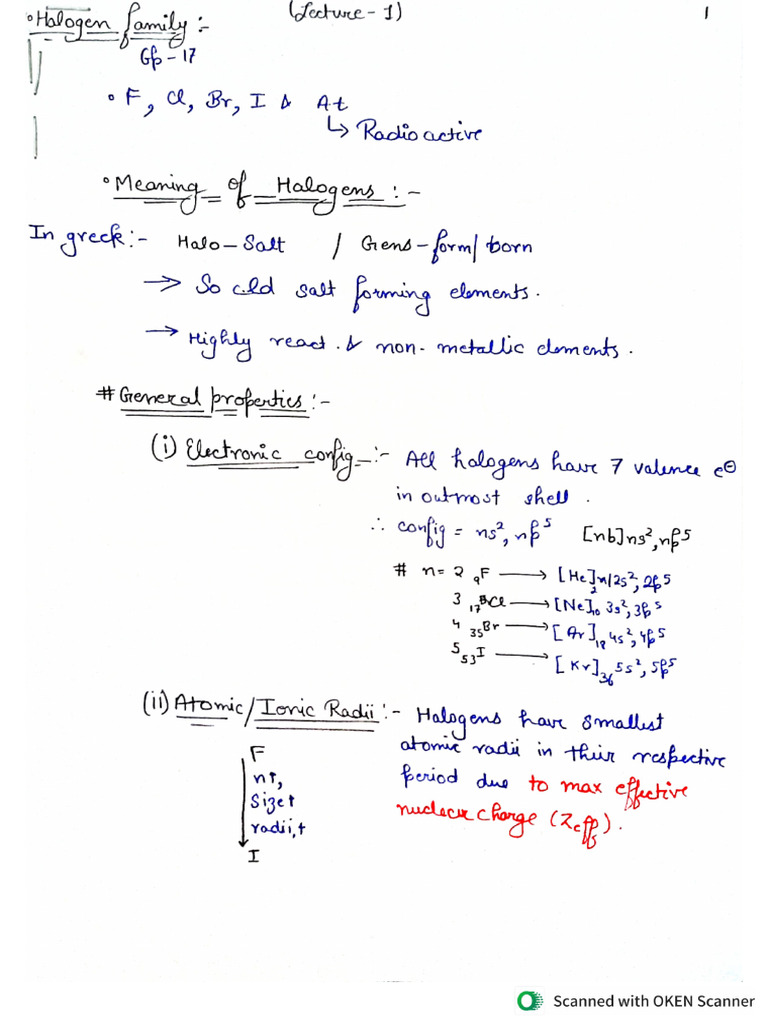 (Lecture - 1) 1
• Halogen family :-
Gp - 17
• F, Cl, Br, I & At
↳ Radioactive
• Meaning of Halogens :-
In greek :- Halo - Salt / Gens - form/born
→ So cld salt forming elements.
→ Highly react. & non-metallic elements.
# General properties :-
(i) Electronic config :- All halogens have 7 valence e⊖
in outmost shell.
∴ config = ns², np⁵ [nb]ns², np⁵
# n = 2 ₉F → [He]₂ 2s², 2p⁵
3 ₁₇Cl → [Ne]₁₀ 3s², 3p⁵
4 ₃₅Br → [Ar]₁₈ 4s², 4p⁵
5 ₅₃I → [Kr]₃₆ 5s², 5p⁵
(ii) Atomic/Ionic Radii :- Halogens have smallest
atomic radii in their respective
period due to max effective
nuclear charge (Zeff).
F
n↑,
Size↑
radii,↑
I
Scanned with OKEN Scanner